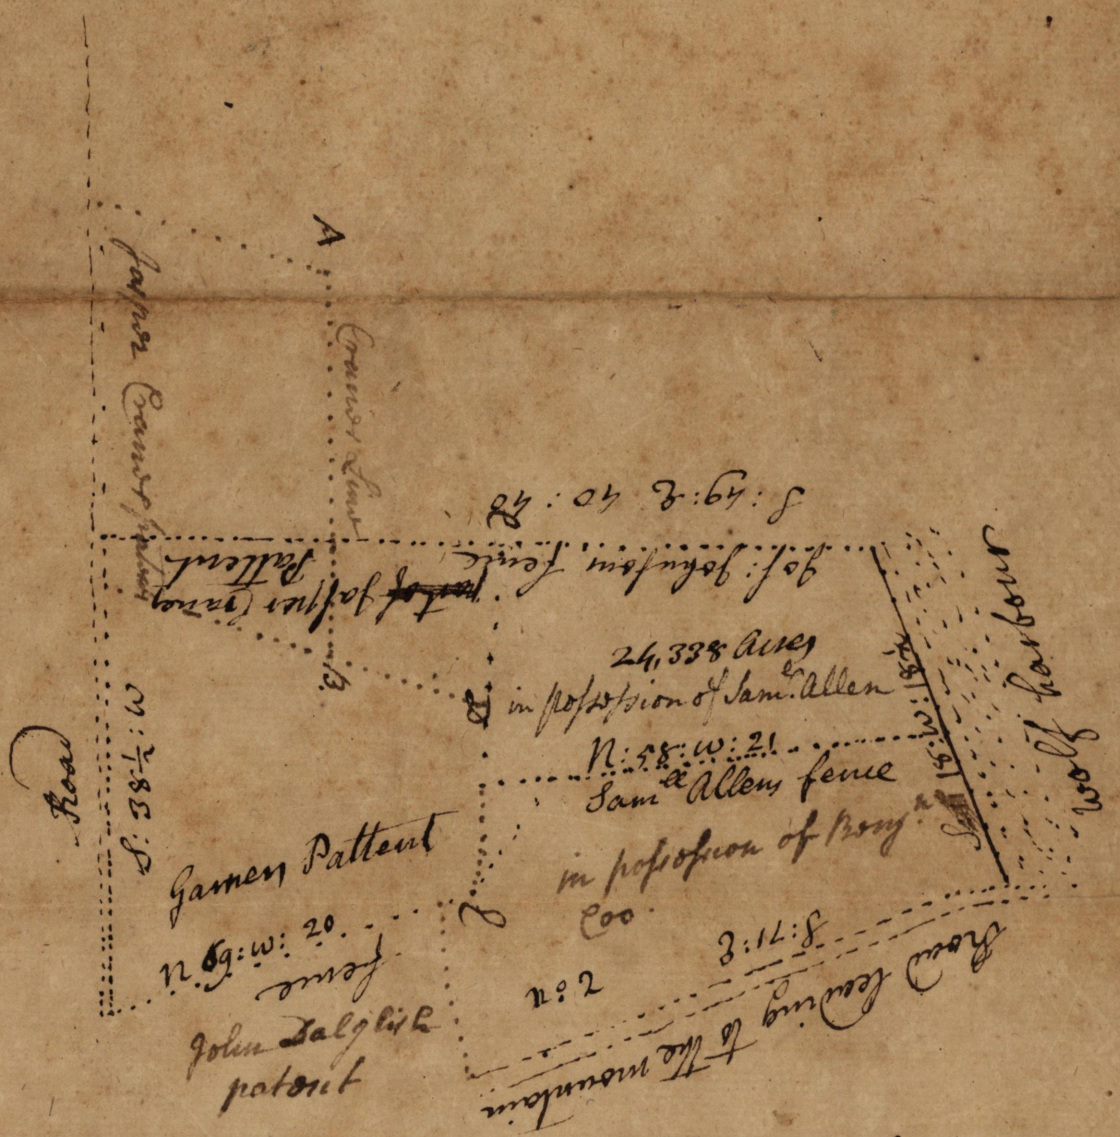 A
Jasper Cranes patent
Cranes Line
S: 49: E 40: 48
Jos: Johnsons fence
part of Jasper Cranes
Pattent
B
24,338 Acres
in possession of Saml. Allen
N: 58: W: 21
Samll Allens fence
in possession of Benjn
Coo
D
Wolf harbour
Road
S: 38½: W
Gamen Pattent
N 69: W: 20
fence
John Dalglish
patent
S: 71: E
Road leading
to the mountain